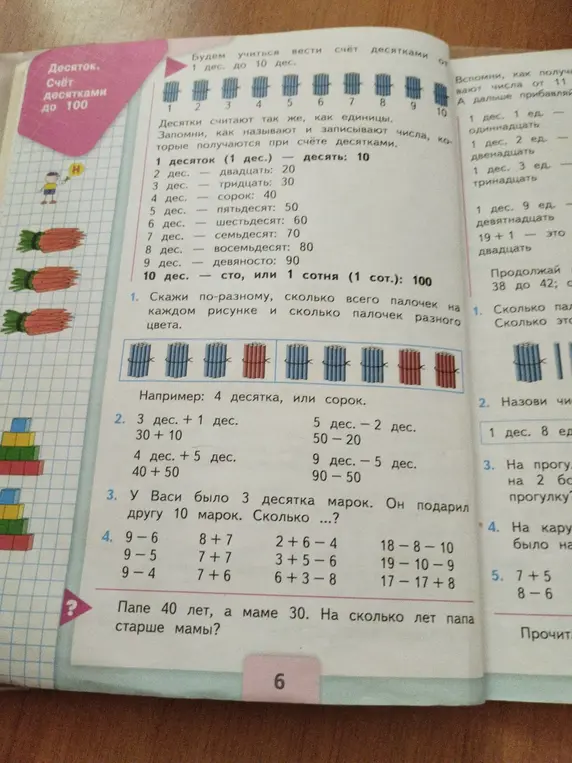 Десяток.
Счёт
десятками
до 100
Н
Будем учиться вести счёт десятками от
1 дес. до 10 дес.
1 2 3 4 5 6 7 8 9 10
Десятки считают так же, как единицы.
Запомни, как называют и записывают числа, ко-
торые получаются при счёте десятками.
1 десяток (1 дес.) — десять: 10
2 дес. — двадцать: 20
3 дес. — тридцать: 30
4 дес. — сорок: 40
5 дес. — пятьдесят: 50
6 дес. — шестьдесят: 60
7 дес. — семьдесят: 70
8 дес. — восемьдесят: 80
9 дес. — девяносто: 90
10 дес. — сто, или 1 сотня (1 сот.): 100
1. Скажи по-разному, сколько всего палочек на
каждом рисунке и сколько палочек разного
цвета.
Например: 4 десятка, или сорок.
2. 3 дес. + 1 дес. 5 дес. − 2 дес.
30 + 10 50 − 20
4 дес. + 5 дес. 9 дес. − 5 дес.
40 + 50 90 − 50
3. У Васи было 3 десятка марок. Он подарил
другу 10 марок. Сколько ...?
4. 9 − 6 8 + 7 2 + 6 − 4 18 − 8 − 10
9 − 5 7 + 7 3 + 5 − 6 19 − 10 − 9
9 − 4 7 + 6 6 + 3 − 8 17 − 17 + 8
? Папе 40 лет, а маме 30. На сколько лет папа
старше мамы?
6
Вспомни, как получа
вают числа от 11
А дальше прибавляй
1 дес. 1 ед. —
одиннадцать
1 дес. 2 ед. —
двенадцать
1 дес. 3 ед. —
тринадцать
1 дес. 9 ед. —
девятнадцать
19 + 1 — это
двадцать
Продолжай
38 до 42;
1. Сколько пал
Сколько это
2. Назови чи
1 дес. 8 ед
3. На прогу
на 2 бо
прогулку?
4. На кару
было на
5. 7 + 5
8 − 6
Прочит